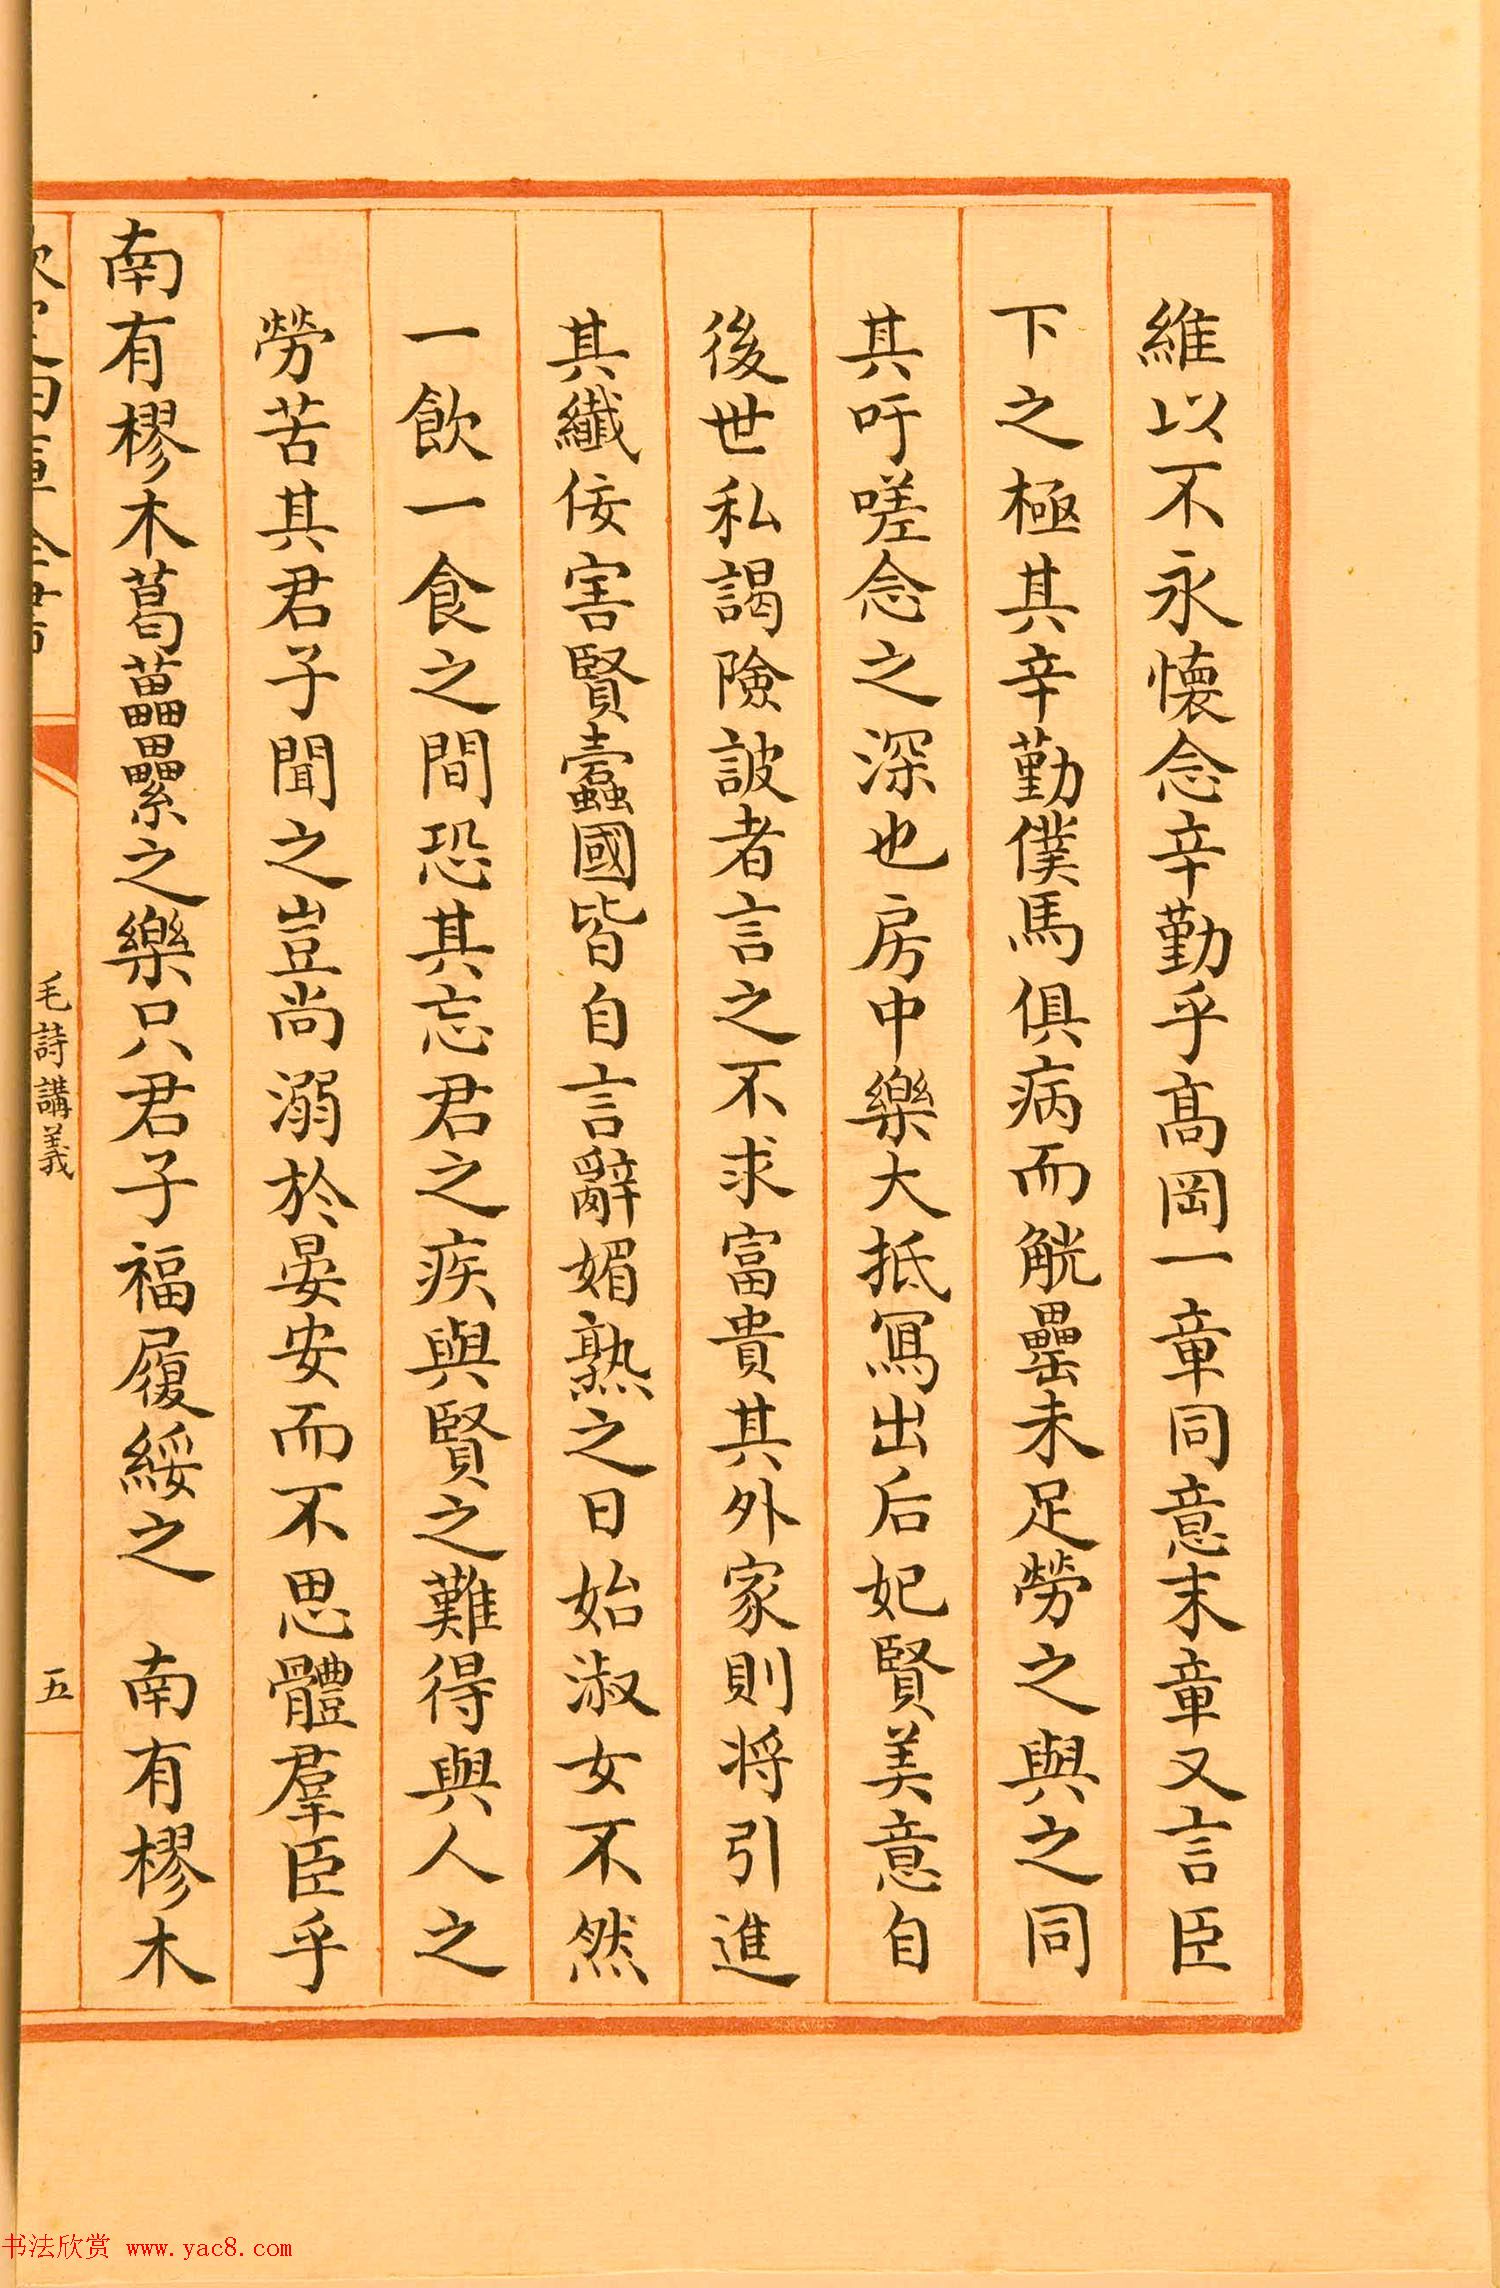 維以不永懐念辛勤乎髙岡一章同意末章又言臣
下之極其辛勤僕馬俱病而觥罍未足勞之與之同
其吁嗟念之深也房中樂大抵寫出后妃賢美意自
後世私謁險詖者言之不求富貴其外家則将引進
其纎佞害賢蠧國皆自言辭媚熟之日始淑女不然
一飲一食之間恐其忘君之疾與賢之難得與人之
勞苦其君子聞之豈尚溺於晏安而不思體羣臣乎
南有樛木葛藟纍之樂只君子福履綏之　南有樛木
毛詩講義
五
书法欣赏 www.yac8.com